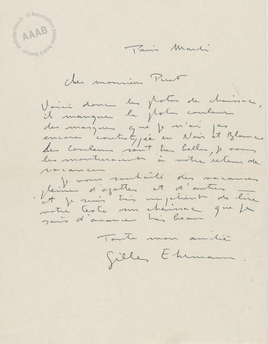 AAAB
Paris Mardi
cher monsieur
Voici donc les photos de chaissac,
il manque la photo couleur
des masques que je n'ai pas
encore en Noir et Blanc
les couleurs sont très belles, je vous
les montrerai à votre retour de
vacances
Je vous souhaite des vacances
pleines d'agates et d'autres
et je suis très impatient de lire
votre texte sur chaissac que je
sais d'avance très beau
Toute mon amitié
Gilles Ehrmann